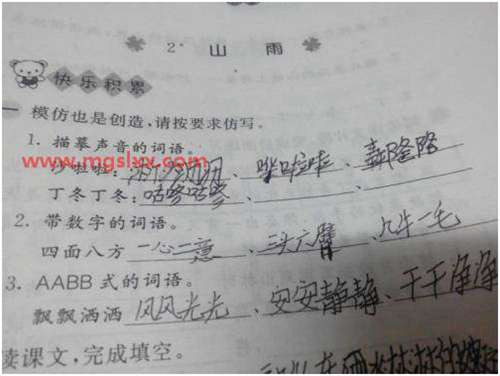 2* 山 雨
快乐积累
一 模仿也是创造,请按要求仿写。
1. 描摹声音的词语。
www.mgslyx.com
沙啦啦: 、哗啦啦、轰隆隆
丁冬丁冬:咕咚咕咚、 、
2. 带数字的词语。
四面八方 一心二意、三头六臂、九牛一毛
3. AABB 式的词语。
飘飘洒洒 风风光光、安安静静、干干净净
读课文,完成填空。